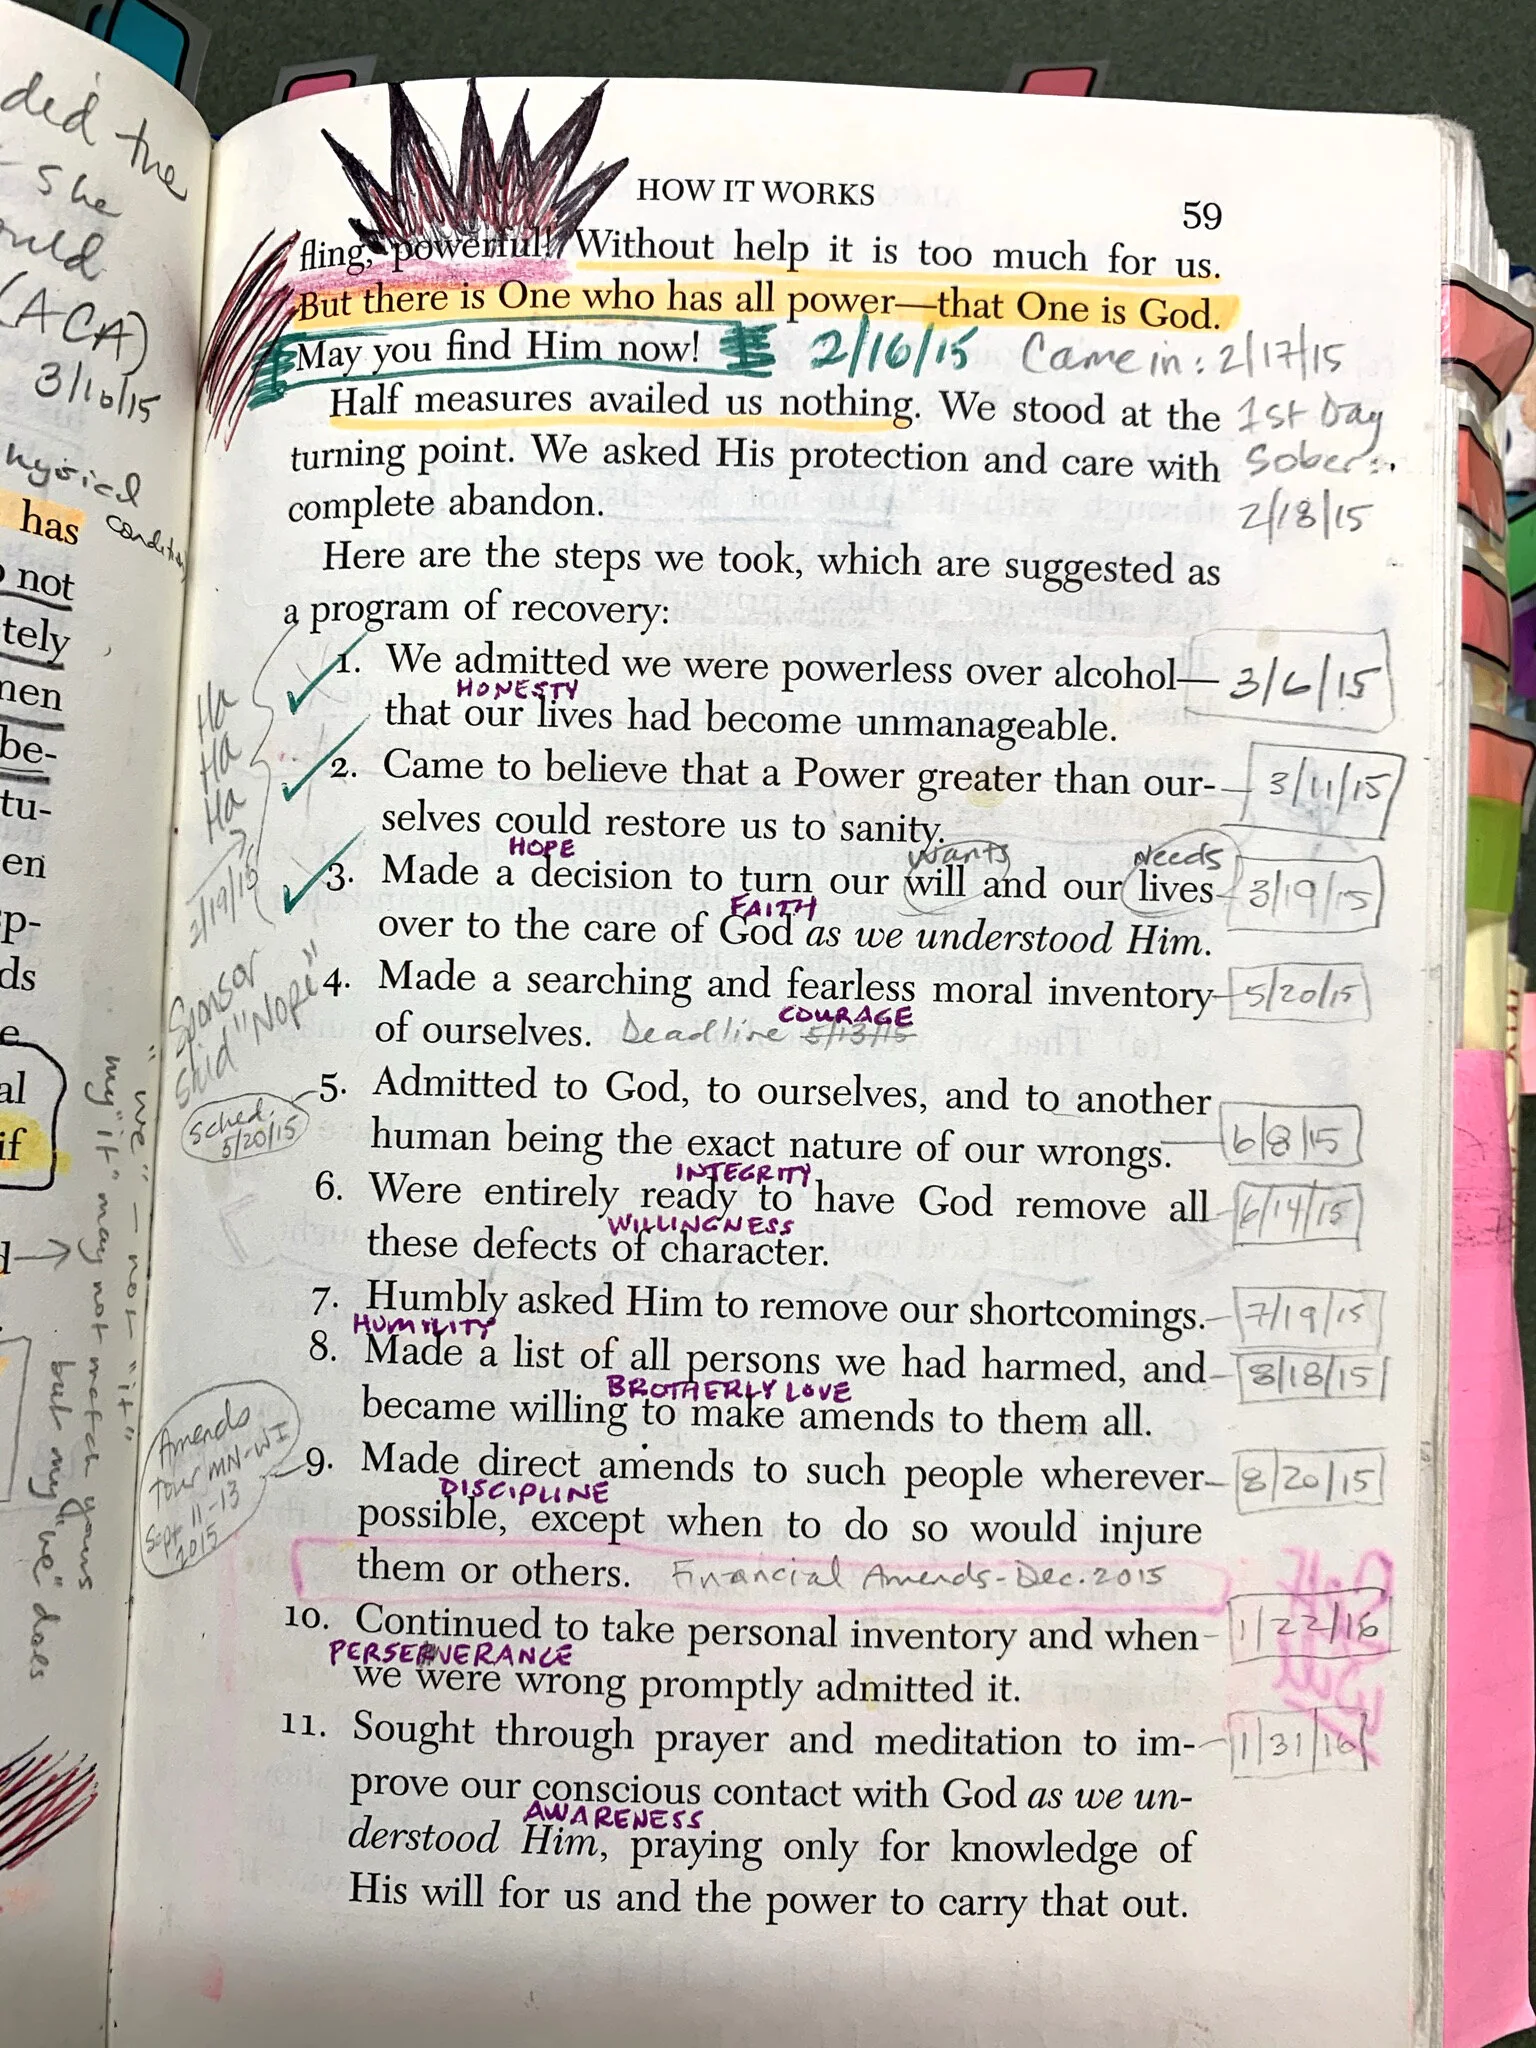 ded the
she
ould
(ACA)
3/10/15
hysical
condition
has
not
tely
men
be-
tu-
en
p-
ds
e
al
if
"we" — not "it"
my "it" may not match yours
but my "we" does
HOW IT WORKS
59
fling, powerful! Without help it is too much for us.
But there is One who has all power—that One is God.
May you find Him now!
2/16/15
Came in: 2/17/15
Half measures availed us nothing. We stood at the
1st Day
turning point. We asked His protection and care with
Sober:
complete abandon.
2/18/15
Here are the steps we took, which are suggested as
a program of recovery:
Ha
Ha
Ha
2/19/15
Sponsor
said "Nope"
1. We admitted we were powerless over alcohol—
3/6/15
HONESTY
that our lives had become unmanageable.
2. Came to believe that a Power greater than our-
3/11/15
selves could restore us to sanity.
HOPE
Wants
Needs
3. Made a decision to turn our will and our lives
3/19/15
FAITH
over to the care of God as we understood Him.
4. Made a searching and fearless moral inventory
5/20/15
COURAGE
of ourselves. Deadline 5/13/15
5. Admitted to God, to ourselves, and to another
Sched.
5/20/15
human being the exact nature of our wrongs.
6/8/15
INTEGRITY
6. Were entirely ready to have God remove all
6/14/15
WILLINGNESS
these defects of character.
7. Humbly asked Him to remove our shortcomings.
7/19/15
HUMILITY
8. Made a list of all persons we had harmed, and
8/18/15
BROTHERLY LOVE
became willing to make amends to them all.
Amends
Tour MN-WI
Sept 11-13
2015
9. Made direct amends to such people wherever
8/20/15
DISCIPLINE
possible, except when to do so would injure
them or others. Financial Amends - Dec. 2015
10. Continued to take personal inventory and when
1/22/16
PERSERVERANCE
we were wrong promptly admitted it.
11. Sought through prayer and meditation to im-
1/31/16
prove our conscious contact with God as we un-
AWARENESS
derstood Him, praying only for knowledge of
His will for us and the power to carry that out.